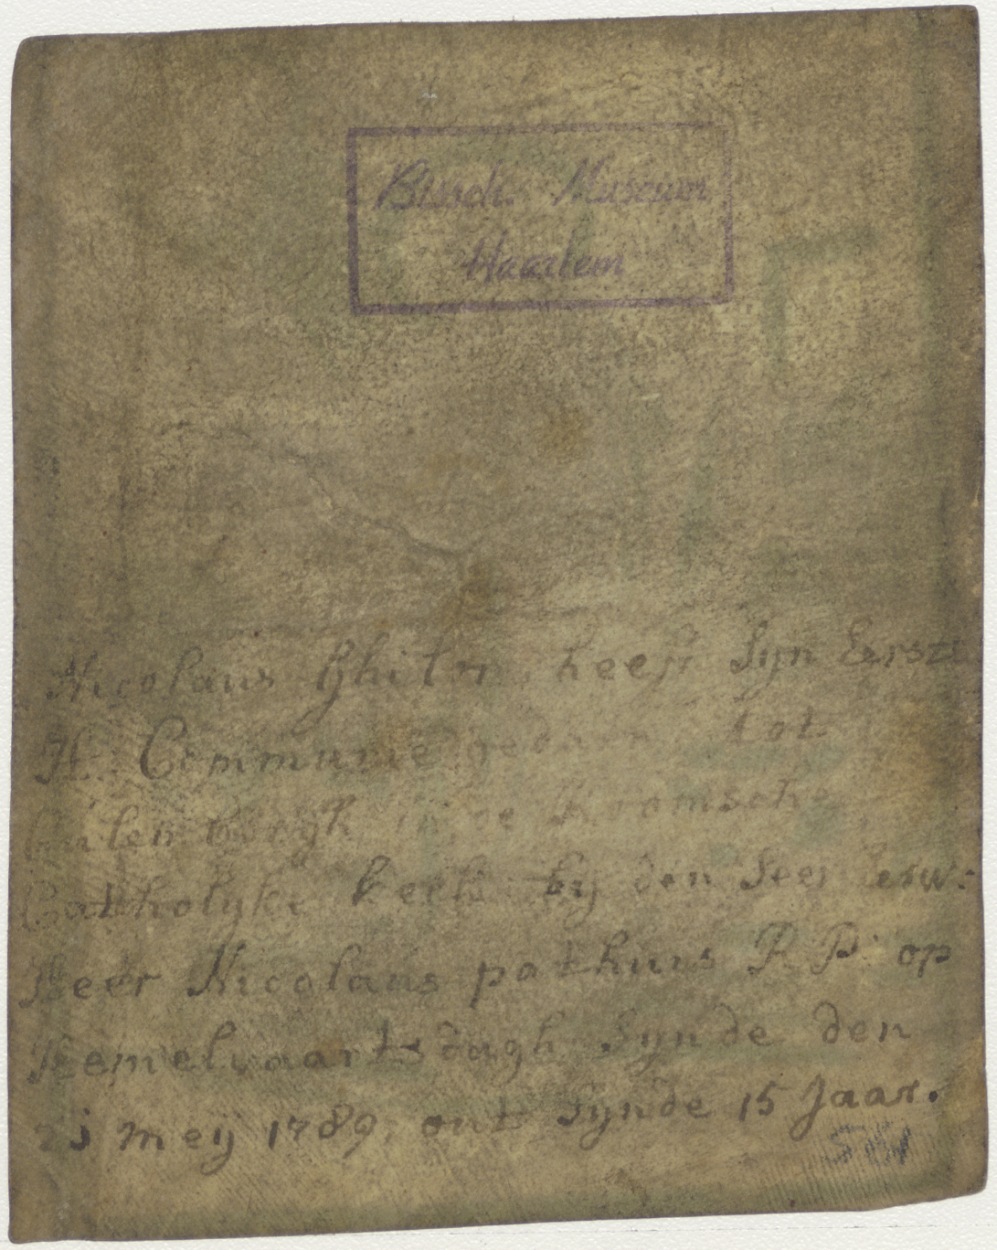 Bissch. Museum
Haarlem
Nicolaus heeft Syn Eerste
H. Communie gedaan tot
in de Roomsche
Catholyke Kerk by den Seer eerw:
Heer Nicolaus pathuis R P: op
Hemelvaarts dagh Synde den
21 meij 1789, out Synde 15 Jaar.